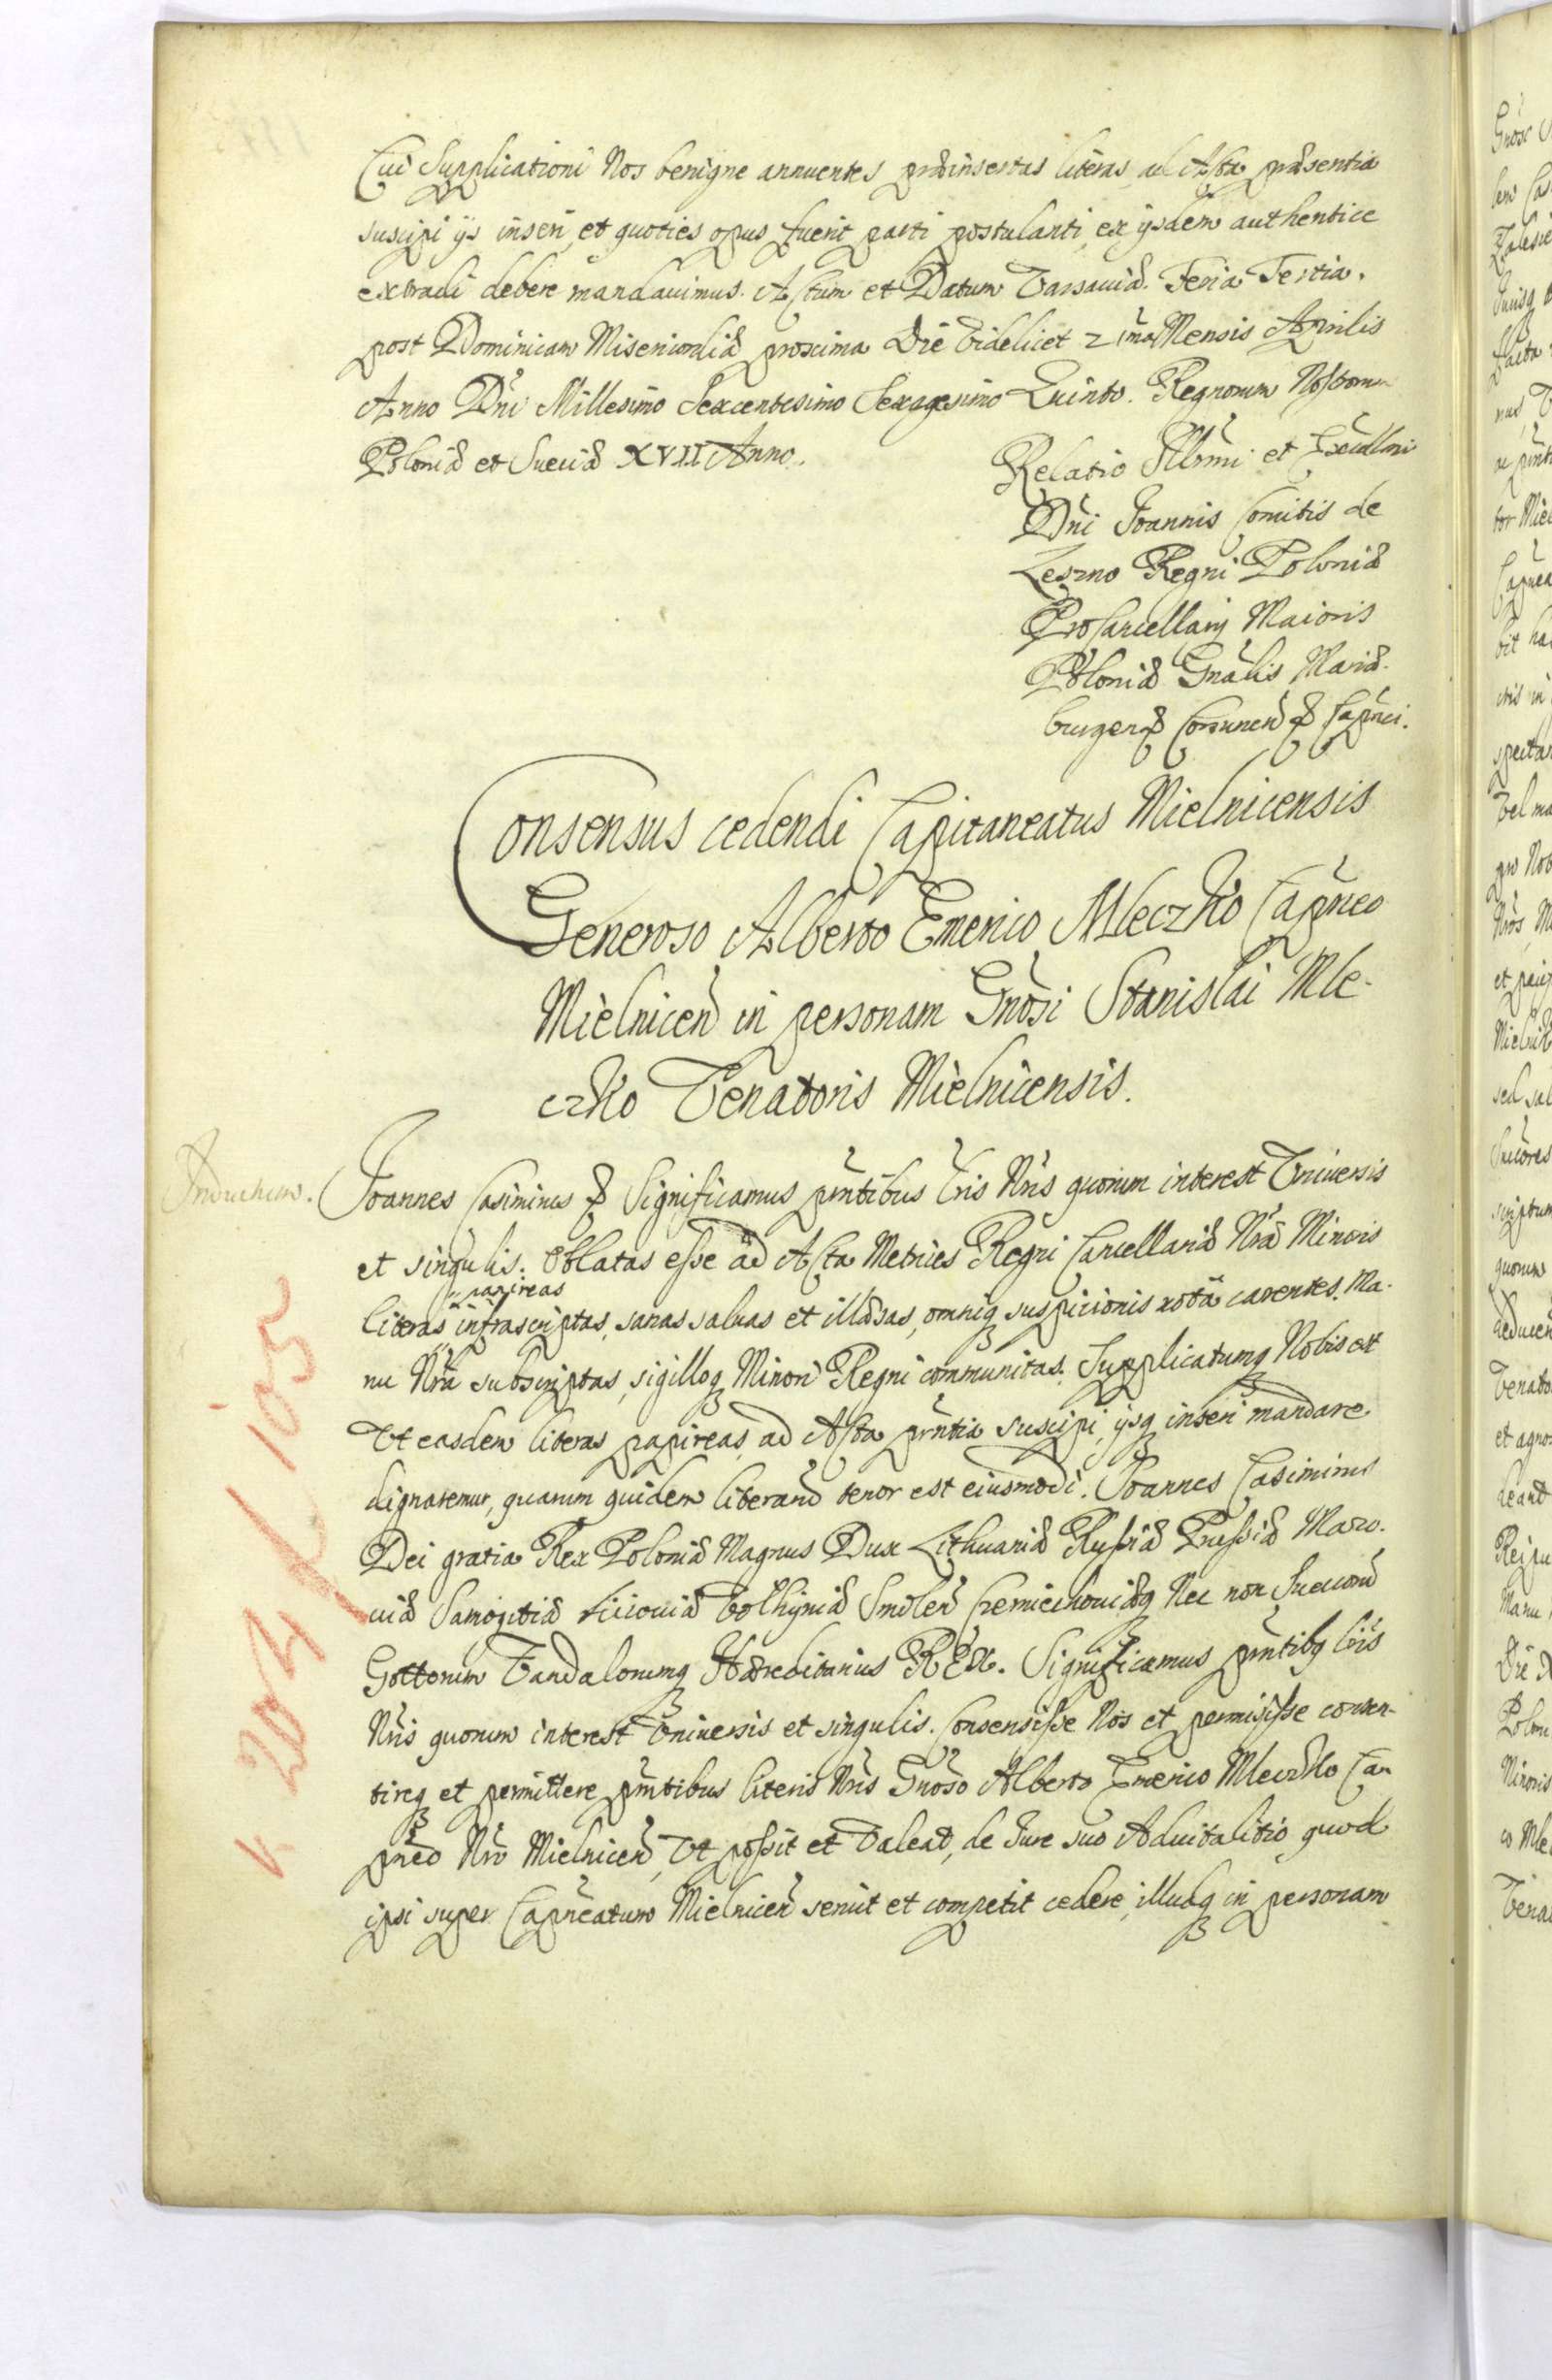 Cui Supplicationi Nos benigne annuentes præinsertas literas ad Acta præsentia
suscipi ijs inseri, et quoties opus fuerit parti postulanti, ex ijsdem authentice
extradi debere mandauimus. Actum et Datum Varsauiæ. Feria Tertia.
post Dominicam Misericordiæ proxima Die Videlicet 21ma Mensis Aprilis
Anno Dni Millesimo Sexcentesimo Sexagesimo Quinto. Regnorum Nostrorum
Poloniæ et Sueciæ XVII Anno.
Relatio Illrmi et Excellmi
Dni Joannis Comitis de
Leszno Regni Poloniæ
ProCancellarij Maioris
Poloniæ Gnalis, Mariæ-
burgen Corsunen & Capnei.
Consensus cedendi Capitaneatus Mielnicensis
Generoso Alberto Emerico Mleczko Capneo
Mielnicen in personam Gnosi Stanislai Mle-
czko Venatoris Mielnicensis.
Joannes Casimirus & Significamus pntibus Lris Nris quorum interest Vniuersis
et singulis. Oblatas esse ad Acta Metrices Regni Cancellariæ Nræ Minoris
papireas
literas infrascriptas, sanas saluas et illæsas, omniq suspicionis nota carentes. Ma-
nu Nra subscriptas, sigilloq Minori Regni communitas. Supplicatumq Nobis est
Vt easdem literas papireas, ad Acta pntia suscipi, ijsq inseri mandare
dignaremur, quarum quidem literarum tenor est eiusmodi. Joannes Casimirus
Dei gratia Rex Poloniæ Magnus Dux Lithuaniæ Russiæ Prussiæ Mazo-
uiæ Samogitiæ Liuoniæ Volhyniæ Smolen Czerniechouiæq Nec non Suecorum
Gottorum Vandalorumq Hæreditarius REX. Significamus pntibq Lris
Nris quorum interest Vniuersis et singulis. Consensisse Nos et permisisse consen-
tireq et permittere pntibus literis Nris Gnoso Alberto Emerico Mleczko Ca-
pneo Nro Mielnicen, Vt possit et Valeat, de Jure suo Aduitalitio quod
ipsi super Capneatum Mielnicen seruit et competit cedere, illudq in personam
K 203 f. 105